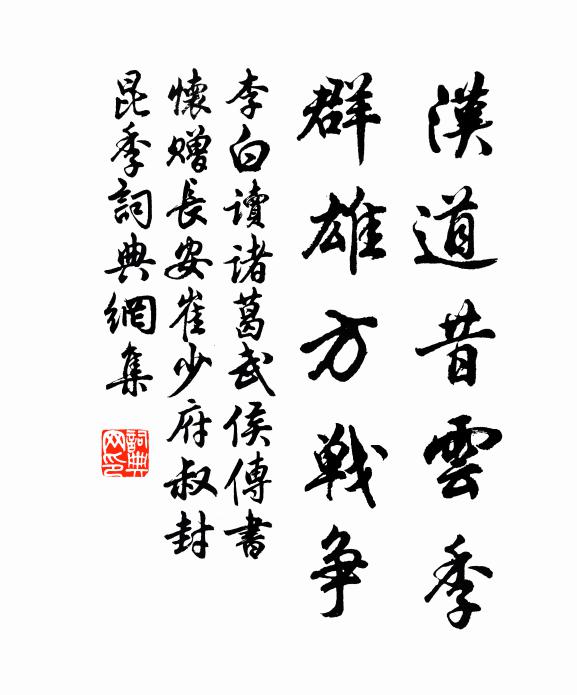 漢道昔雲季
群雄方戰爭
李白讀諸葛武侯傳書
懷贈長安崔少府叔封
昆季詞典網集
詞典網印